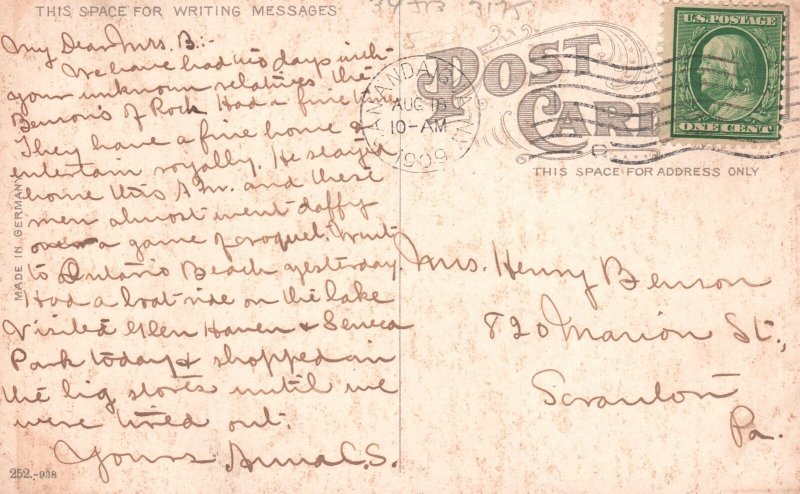 THIS SPACE FOR WRITING MESSAGES
My Dear Mrs. B:-
We have had two days with
your unknown relatives the
Bensons of Roch. Had a fine time
They have a fine home &
entertain royally. He stayed
home this A.M. and these
men almost went daffy
over a game of roquet. Went
to Ontario Beach yesterday.
Had a boat ride on the lake
Visited Glen Haven & Seneca
Park today & shopped in
the big stores until we
were tired out.
Yours Anna C.S.
MADE IN GERMANY
252.-938
3175
CANANDAIGUA, N.Y.
AUG 18
10-AM
1909
POST
CARD
U.S. POSTAGE
ONE CENT
THIS SPACE FOR ADDRESS ONLY
Mrs. Henry Benson
820 Marion St.,
Scranton
Pa.